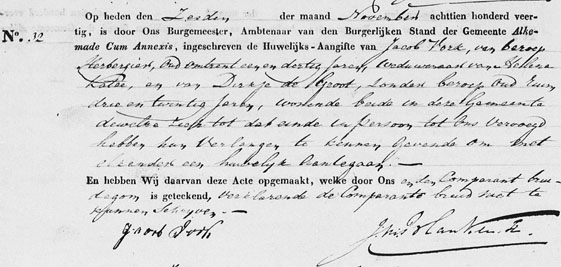 Op heden den Zesden der maand November achttien honderd veer-
Nº. 12 tig, is door Ons Burgemeester, Ambtenaar van den Burgerlijken Stand der Gemeente Alke-
made Cum Annexis, ingeschreven de Huwelijks-Aangifte van Jacob Vork, van beroep
Herbergier, Oud omtrent een en dertig Jaren, Weduwenaar van Helena
en van Dirkje de Groot, zonder beroep Oud
drie en twintig Jaren, wonende beide in deze Gemeente
dewelke zich tot dat einde in persoon tot Ons vervoegd
hebben hun Verlangen te kennen Gevende om met
elkander een huwelijk aantegaan. —
En hebben Wij daarvan deze Acte opgemaakt, welke door Ons en den Comparant brui-
degom is geteekend, verklarende de Comparante bruid niet te
kunnen Schrijven. —
Jacob Vork